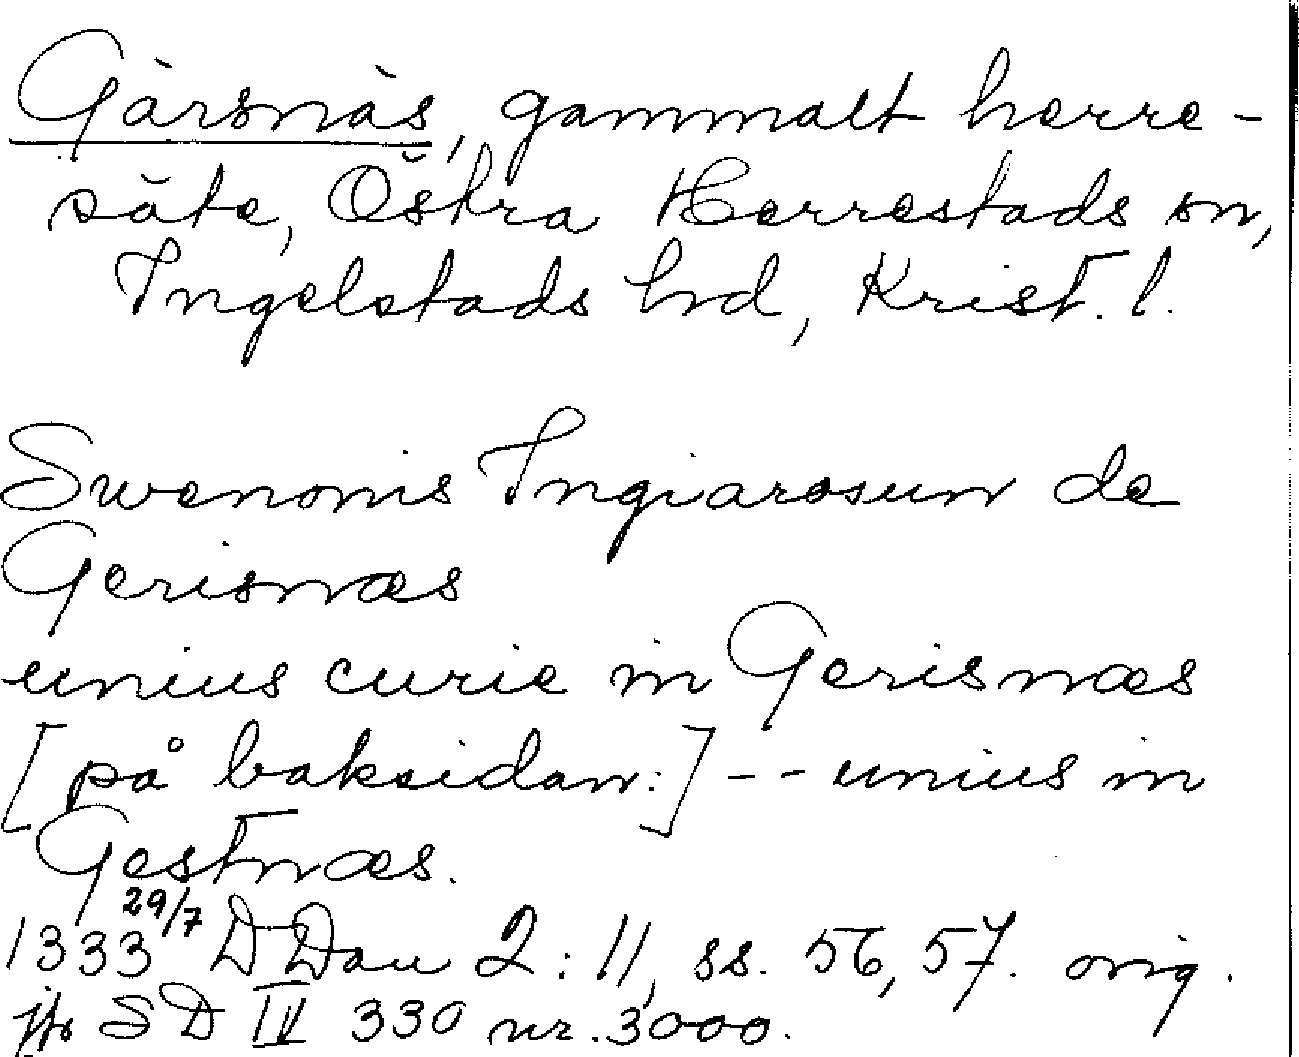 Gärsnäs, gammalt herre-
säte, Östra Herrestads sn,
Ingelstads hd, Krist. l.
Swenonis Ingiarosun de
Gerisnæs
unius curie in Gerisnæs
[på baksidan:] -- unius in
Gestnæs.
1333 29/7 DDan 2: 11, ss. 56, 57. orig.
jfr SD IV 330 nr. 3000.